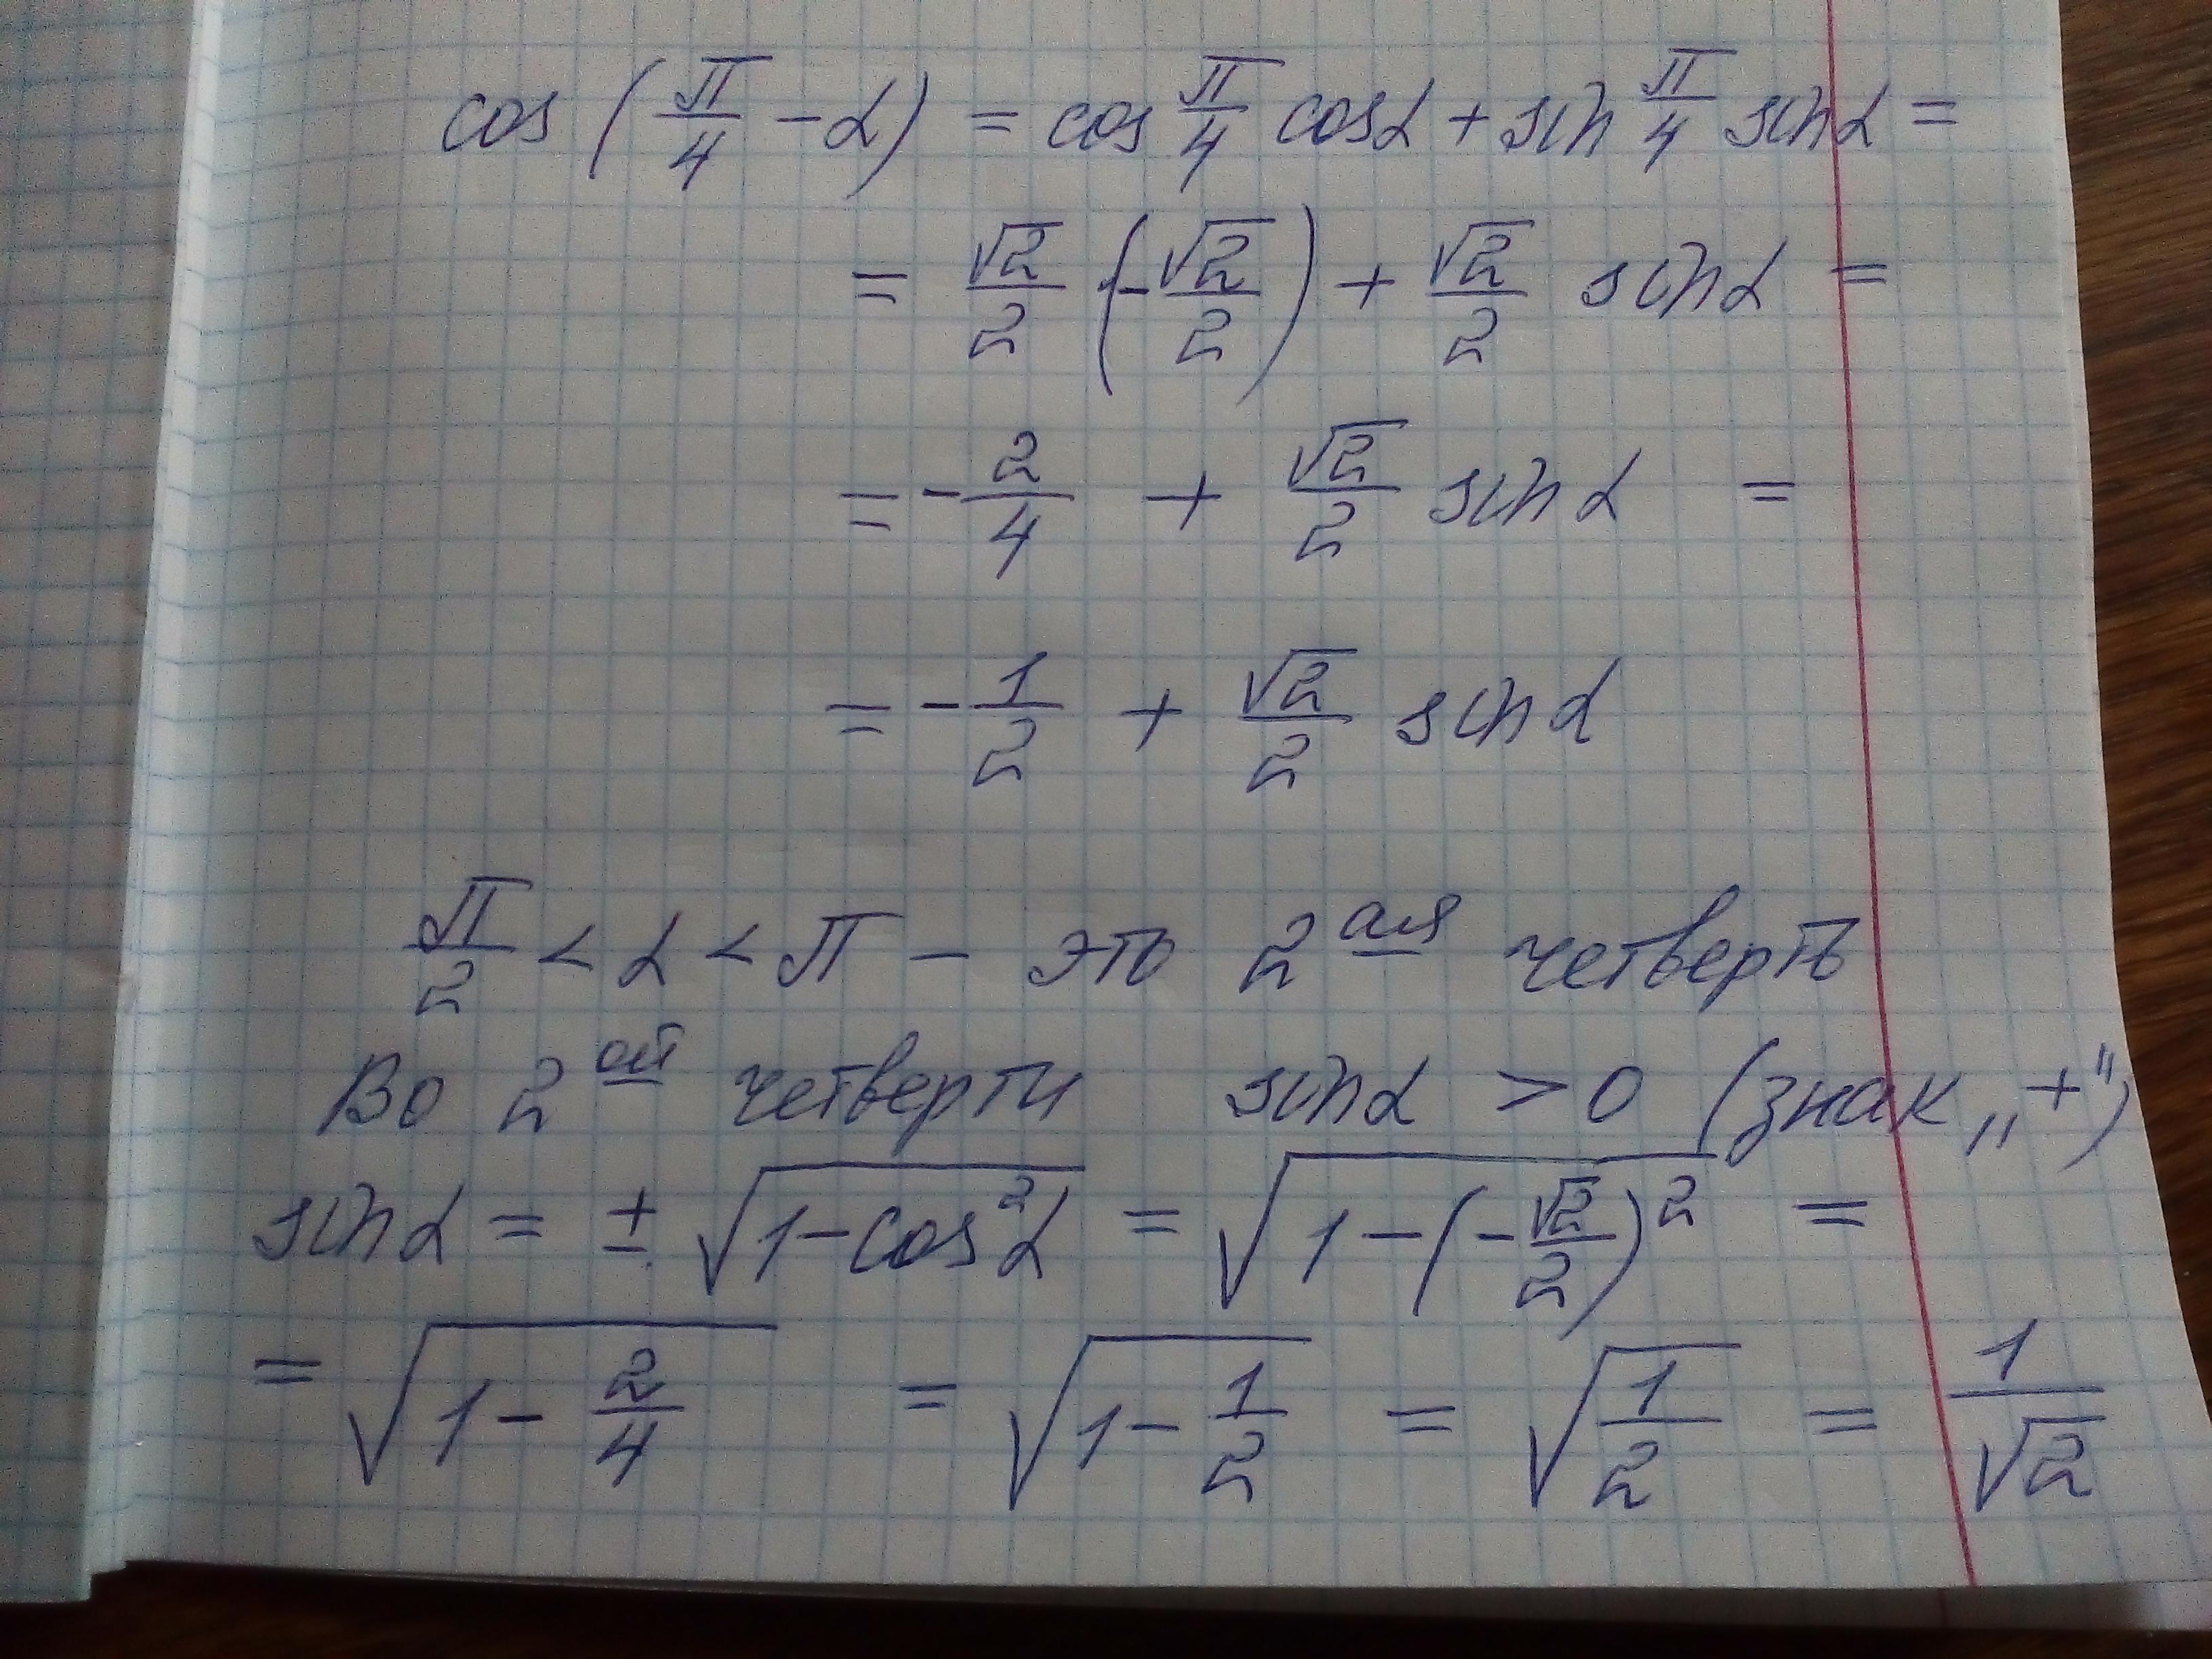 cos (π/4 - α) = cos π/4 cosα + sin π/4 sinα =
= √2/2 (-√2/2) + √2/2 sinα =
= - 2/4 + √2/2 sinα =
= - 1/2 + √2/2 sinα
π/2 < α < π - это 2ая четверть
Во 2ой четверти sinα > 0 (знак „+")
sinα = ± √(1-cos²α) = √(1-(-√2/2)²) =
= √(1 - 2/4) = √(1 - 1/2) = √(1/2) = 1/√2